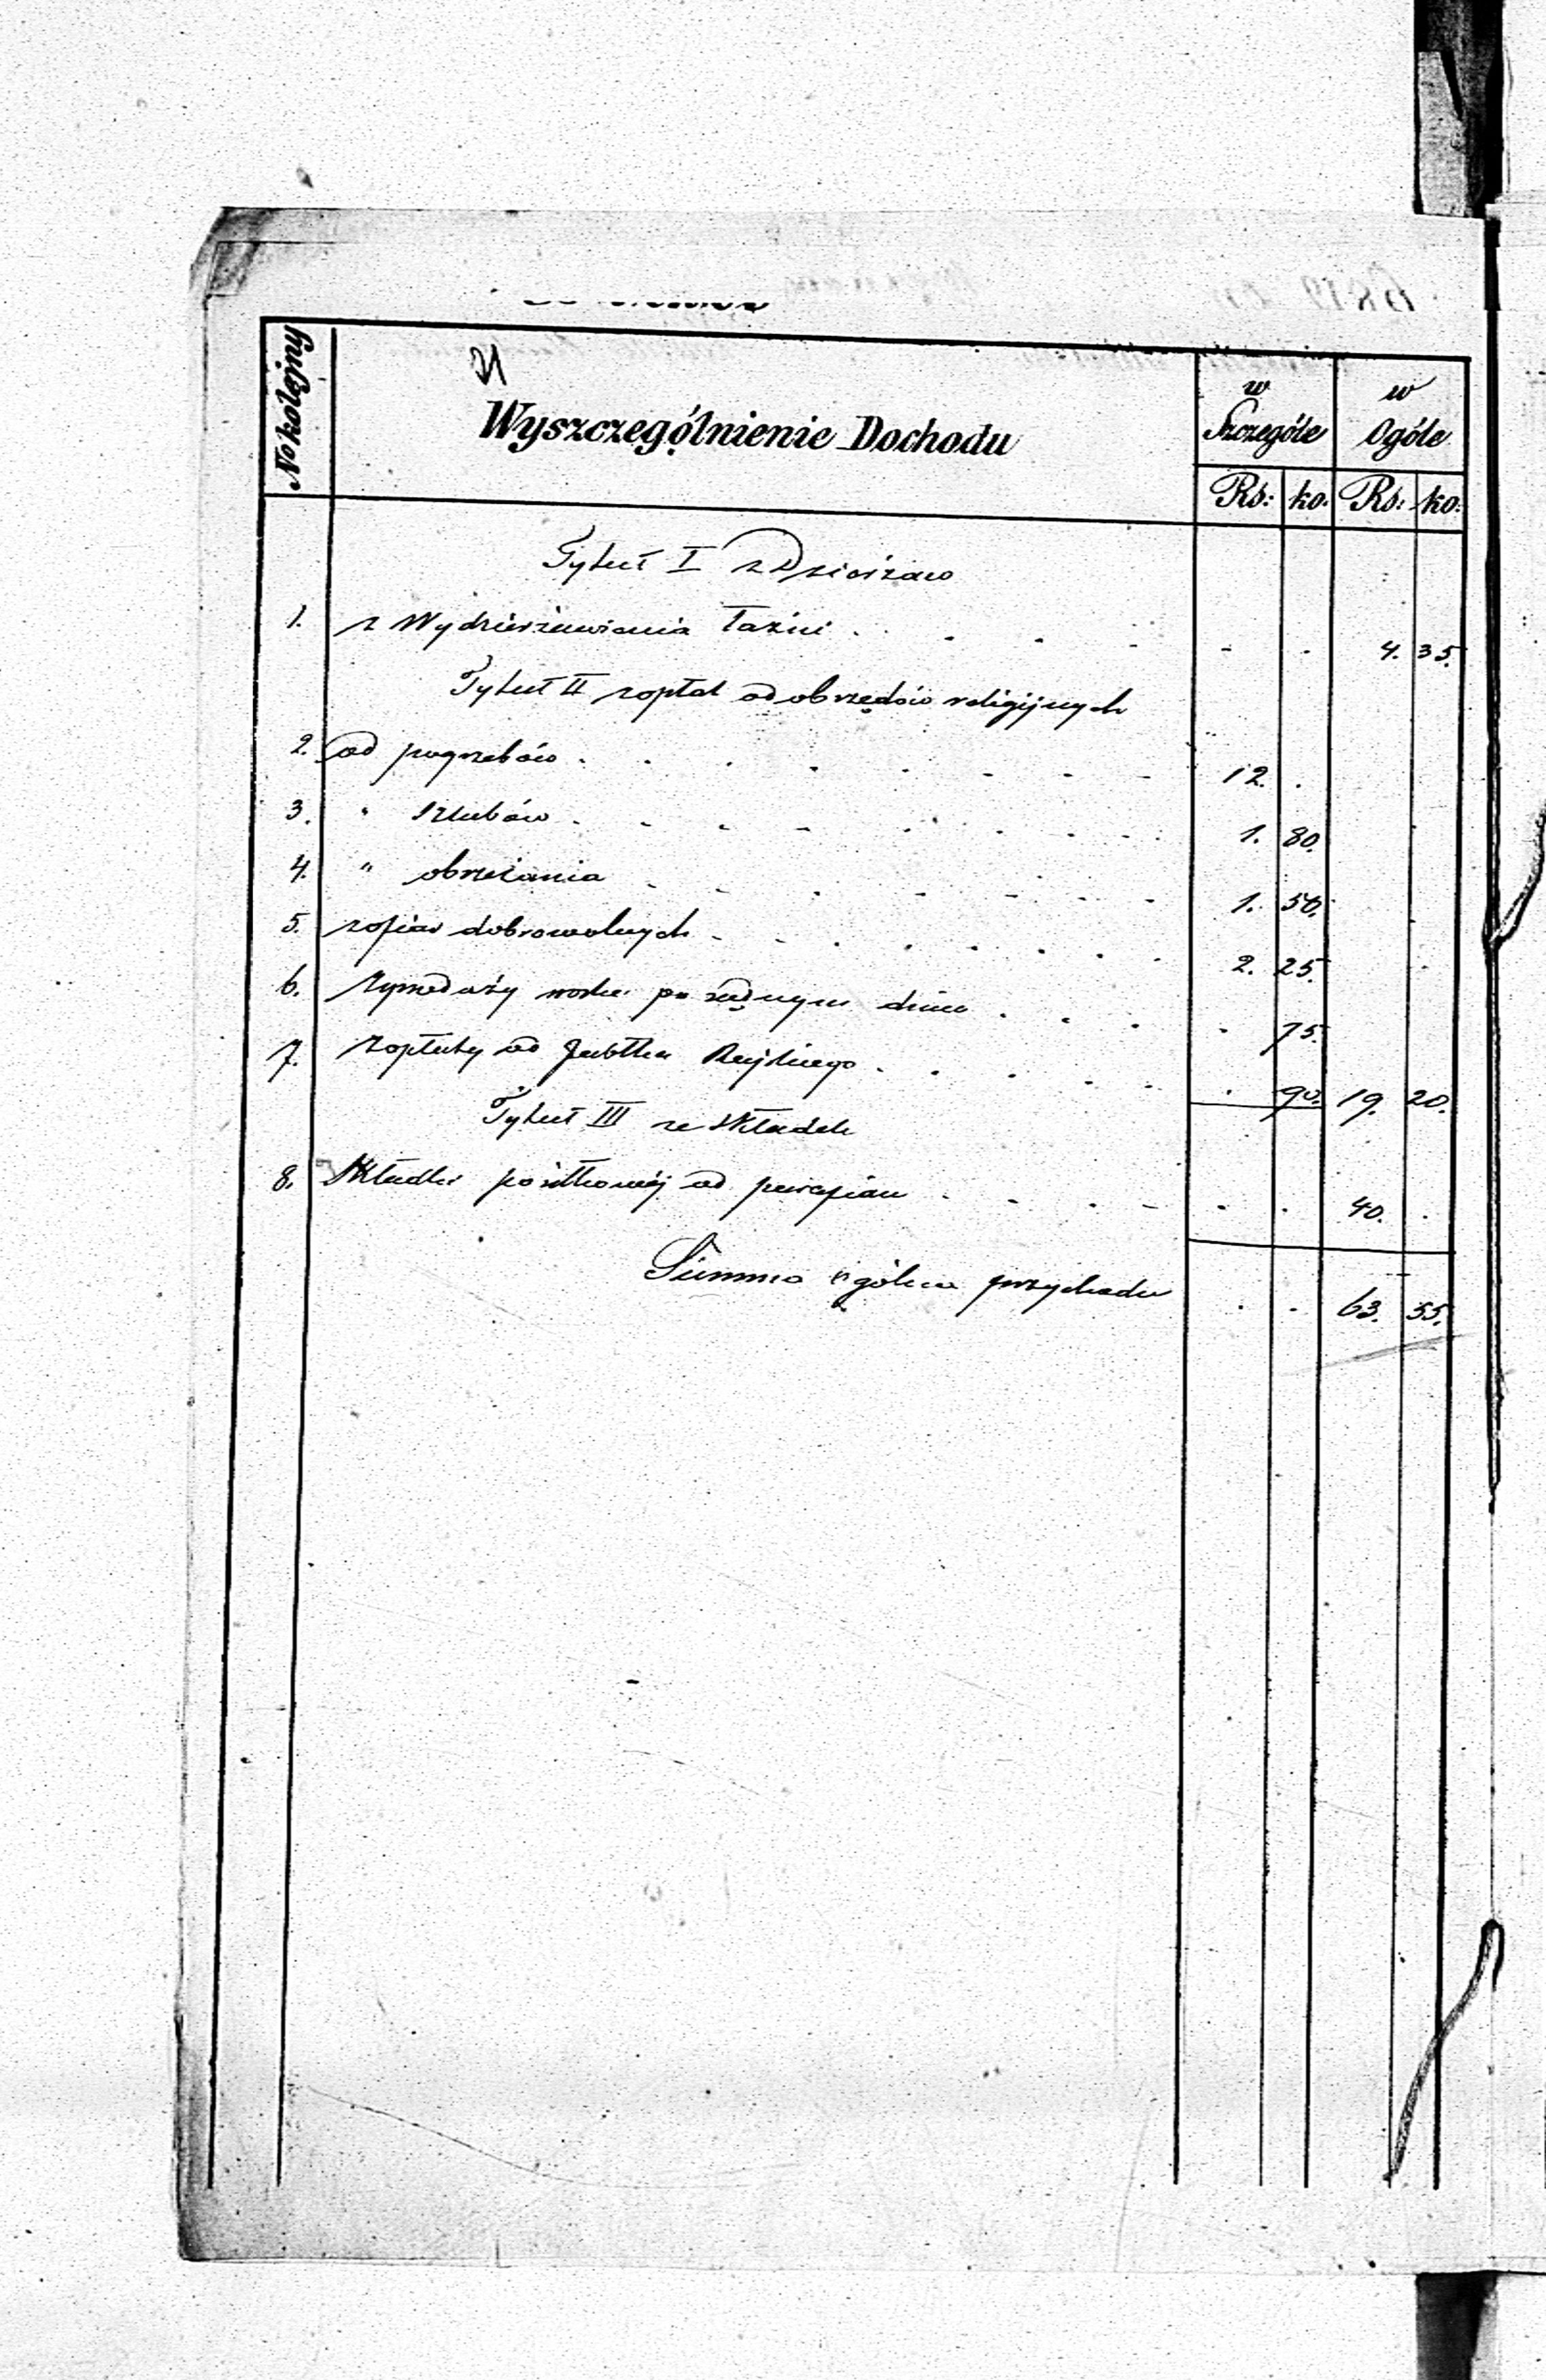 No kolejny
Wyszczególnienie Dochodu
w Szczególe
w Ogóle
Rs: ko. Rs: ko:
Tytuł I z Dzierżaw
1. z Wydzierżawienia Łaźni . . . . - . 4. 35.
Tytuł II z opłat od obrzędów religijnych
2. od pogrzebów . . . . . . . . 12. .
3. " Szlubów . . . . . . . . 1. 80.
4. " obrzezania . . . . . . . 1. 50.
5. z ofiar dobrowolnych . . . . . . 2. 25
6. Zsprzedaży wosku po sądnym dniu . . . . 75.
7. z opłaty od Jabłka Rajskiego . . . . . . 90. 19. 20.
Tytuł III ze składek
8. Składki posiłkowéj od parafian . . . . . . 40. .
Summa ogólna przychodu . . 63. 55.